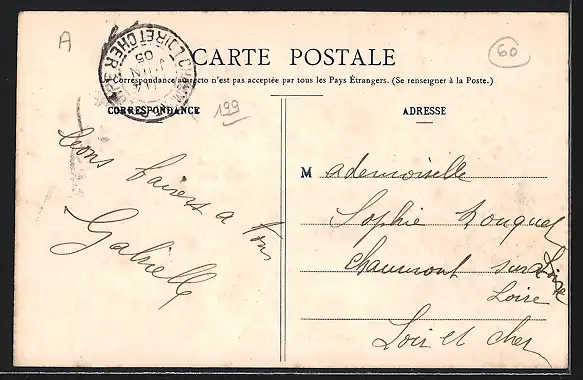 A
60
CARTE POSTALE
Correspondance au recto n'est pas acceptée par tous les Pays Étrangers. (Se renseigner à la Poste.)
CORRESPONDANCE
199
ADRESSE
LOIR ET CHER
JUIN
05
bons baisers a tous
Gabrielle
Mademoiselle
Sophie Rouquet
Chaumont sur Loire
Loire
Loir et Cher